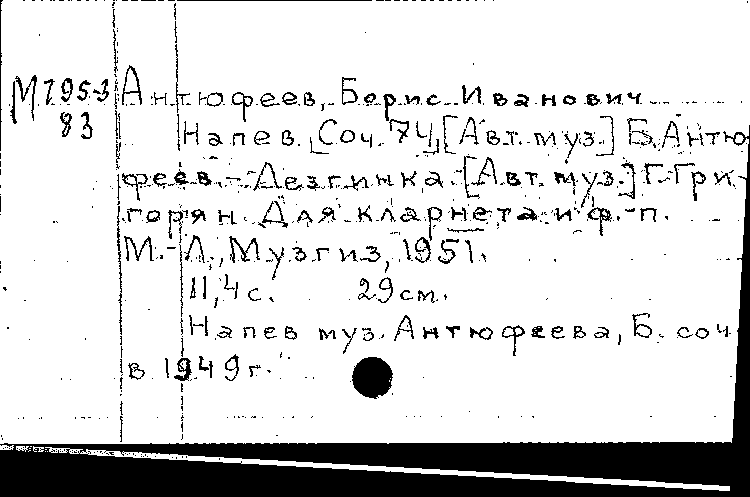 М 795-3 Антюфеев, Борис Иванович
83
Напев. Соч. 74, [Авт. муз.] Б. Антю-
феев. - Лезгинка. [Авт. муз.] Г. Гри-
горян. Для кларнета и ф.-п.
М.-Л., Музгиз, 1951.
11,4 с. 29 см.
Напев муз. Антюфеева, Б. соч.
в 1949 г.